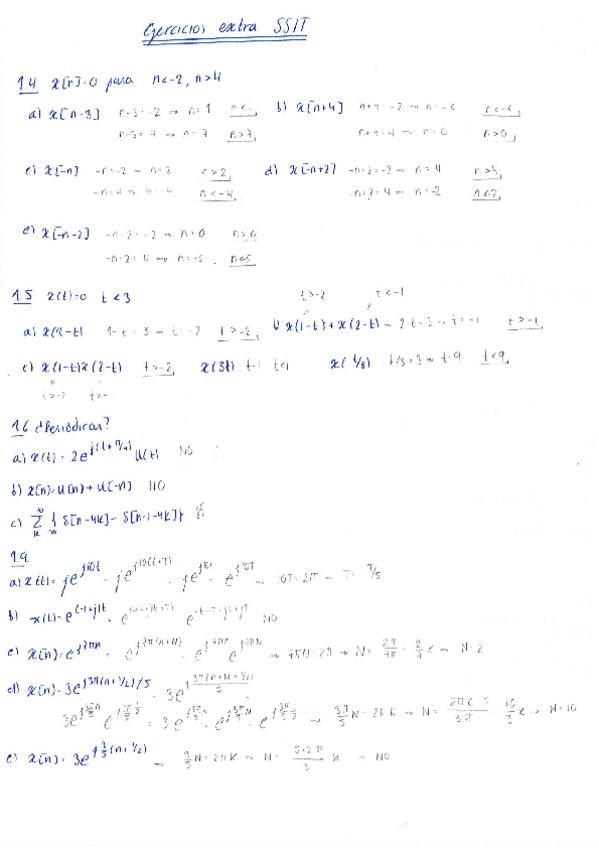 Ejercicios extra SSIT
1.4 x[n]=0 para n<-2, n>4
a) x[n-3] n-3=-2 → n=1 n<1
n-3=4 → n=7 n>7
b) x[n+4] n+4=-2 → n=-6 n<-6
n+4=4 → n=0 n>0
c) x[-n] -n=-2 → n=2 n>2
-n=4 → n=-4 n<-4
d) x[-n+2] -n+2=-2 → n=4 n>4
-n+2=4 → n=-2 n<2
e) x[-n-2] -n-2=-2 → n=0 n>0
-n-2=4 → n=-6 n<5
1.5 x(t)=0 t<3
t>-2 t<-1
a) x(1-t) 1-t=3 → t=-2 t>-2
b) x(1-t)+x(2-t) → 2-t=3 → t=-1 t>-1
c) x(1-t)x(2-t) t>-2 x(3t) t=1 t<1 x(t/3) t/3=3 → t=9 t<9
t>-2 t>-
1.6 ¿Periódicas?
a) x(t)=2e^{j(t+π/4)}u(t) NO
b) x[n]=u[n]+u[-n] NO
c) Σ δ[n-4k]-δ[n-1-4k]
1.9
a) x(t)=je^{j10t} = je^{j10(t+T)} = je^{j10t} · e^{j10T} → 10T=2π → T=π/5
b) x(t)=e^{(-1+j)t} = e^{(-1+j)(t+T)} e^{-t-T+jt+jT} NO
c) x[n]=e^{j7πn} = e^{j7π(n+N)} = e^{j7πn} e^{j7πN} → 7πN=2π → N=2π/7π = 2/7 k → N=2
d) x[n]=3e^{j3π(n+1/2)/5} = 3e^{j3π(n+N+1/2)/5}
3e^{j3π/5 n} e^{j3π/5 1/2} = 3e^{j3π/5 n} · e^{j3π/5 N} · e^{j3π/5 1/2} → 3π/5 N=2πk → N=2πk·5/3π = 10/3 k → N=10
e) x[n]=3e^{j3/5(n+1/2)} → 3/5 N=2πk → N=5·2π/3 k → NO